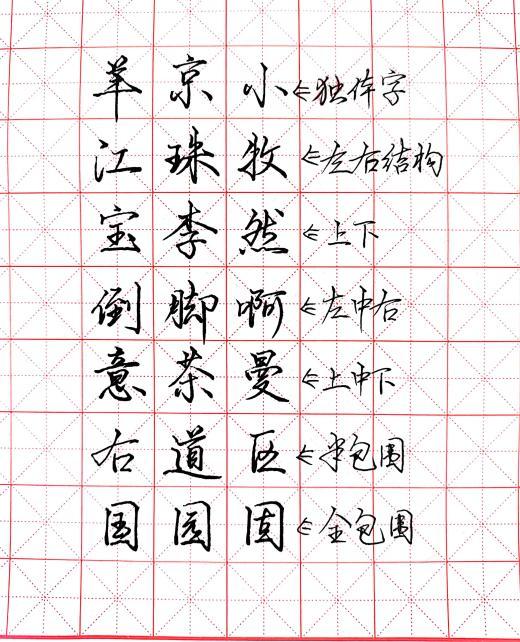 羊京小⇐独体字
江珠牧⇐左右结构
宝李然⇐上下
倒脚啊⇐左中右
意茶曼⇐上中下
右道区⇐半包围
国园固⇐全包围